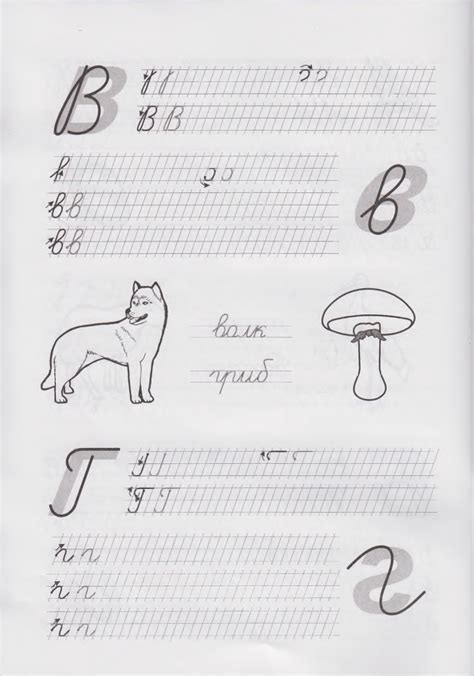 В
В В
в
в в
в в
волк
гриб
Г
Г Г
г г
г г
г г
г